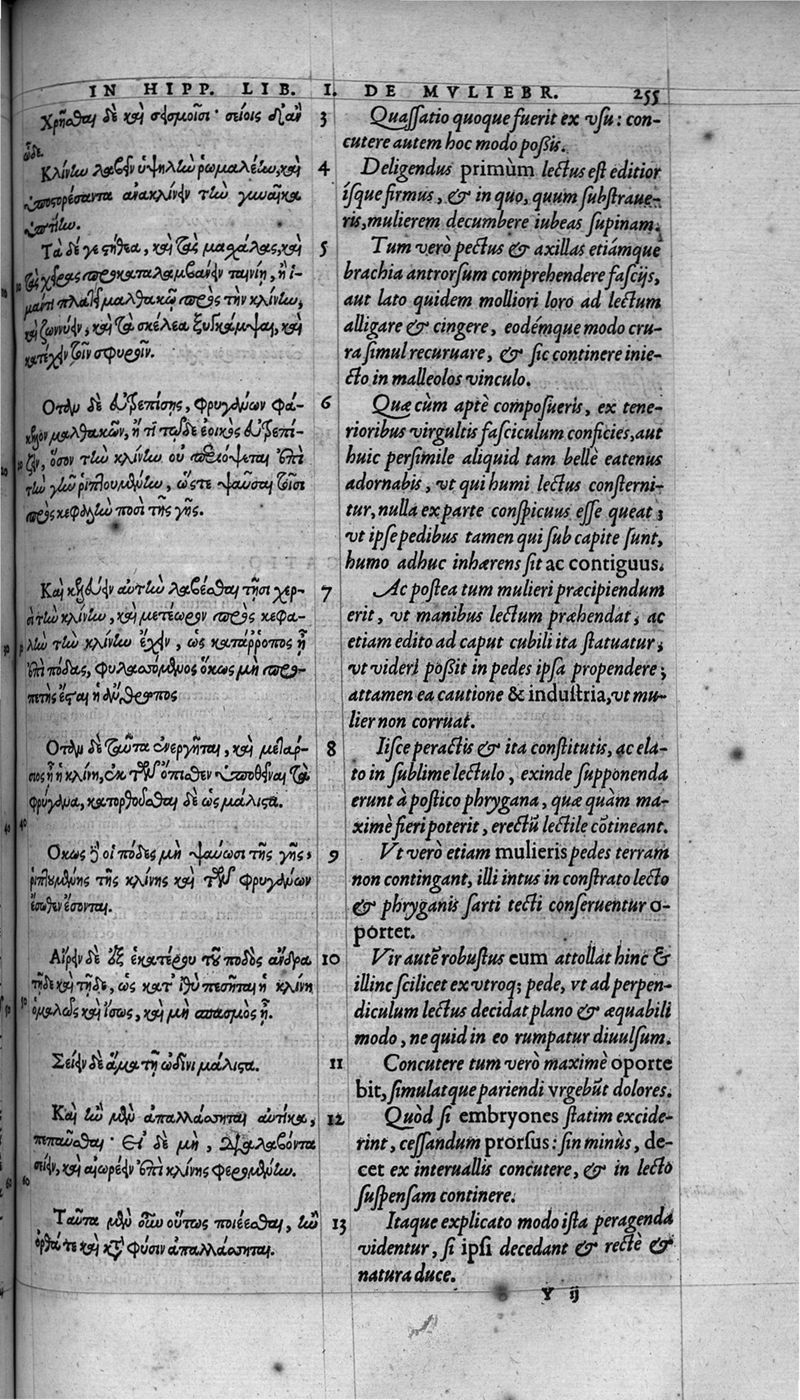 IN HIPP. LIB. I. DE MVLIEBR. 255
Χρῆσθαι δὲ καὶ σεισμοῖσι· σείοις δ' ἂν
ὧδε.
Κλίνην λαβεῖν ὑψηλὴν ῥωμαλέην, καὶ
ὑποστορέσαντα ἀνακλίνειν τὴν γυναῖκα
ὑπτίην.
Τὰ δέ γε στήθεα, καὶ τὰς μασχάλας, καὶ
τὰς χεῖρας περικαταλαμβάνειν ταινίῃ, ἢ ἱ-
μάντι πλατεῖ μαλθακῷ πρὸς τὴν κλίνην,
καὶ ζωννύειν, καὶ τὰ σκέλεα ξυγκάμψαι, καὶ
κατέχειν τοῖν σφυροῖν.
Ὅταν δὲ εὐτρεπίσῃς, φρυγάνων φά-
κελον μαλθακῶν, ἤ τι τῷδε ἐοικὸς εὐτρεπί-
ζειν, ὅσον τὴν κλίνην οὐ περιόψεται ἐπὶ
τὴν γῆν ῥιπτουμένην, ὥστε ψαῦσαι τοῖσι
πρὸς κεφαλὴν ποσὶ τῆς γῆς.
Καὶ κελεύειν αὐτὴν λαβέσθαι τῇσι χερ-
σὶ τὴν κλίνην, καὶ μετέωρον πρὸς κεφα-
λὴν τὴν κλίνην ἔχειν, ὡς κατάῤῥοπος ᾖ
ἐπὶ πόδας, φυλασσόμενος ὅκως μὴ προ-
πετὴς ἔσται ἡ ἄνθρωπος
Ὅταν δὲ ταῦτα ἐνεργῆται, καὶ μεταρ-
σιος ᾖ ἡ κλίνη, ἐκ τῶν ὄπισθεν ὑποθεῖναι τὰ
φρύγανα, κατορθοῦσθαι δὲ ὡς μάλιστα.
Ὅκως δὲ οἱ πόδες μὴ ψαύωσι τῆς γῆς,
ῥιπτουμένης τῆς κλίνης καὶ τῶν φρυγάνων
ἔσωθεν ἔσονται.
Αἴρειν δὲ ἐξ ἑκατέρου τοῦ ποδὸς ἄνδρα
τῇδε καὶ τῇδε, ὡς κατ' ἰθὺ πεσῆται ἡ κλίνη
ὁμαλῶς καὶ ἴσως, καὶ μὴ σπασμὸς ᾖ.
Σείειν δὲ ἅμα τῇ ὠδῖνι μάλιστα.
Καὶ ἢν μὲν ἀπαλλάσσηται αὐτίκα,
πεπαῦσθαι· Εἰ δὲ μὴ, διαλαβόντα
σείειν, καὶ αἰωρέειν ἐπὶ κλίνης φερομένην.
Ταῦτα μὲν οὖν οὕτως ποιέεσθαι, ἢν
ὀρθά τε καὶ κατὰ φύσιν ἀπαλλάσσηται.
3 Quaſſatio quoque fuerit ex vſu: con-
cutere autem hoc modo poßis.
4 Deligendus primùm lectus eſt editior
íſque firmus, & in quo, quum ſubſtraue-
ris, mulierem decumbere iubeas ſupinam.
5 Tum verò pectus & axillas etiámque
brachia antrorſum comprehendere faſcijs,
aut lato quidem molliori loro ad lectum
alligare & cingere, eodémque modo cru-
ra ſimul recuruare, & ſic continere inie-
cto in malleolos vinculo.
6 Quæ cùm aptè compoſueris, ex tene-
rioribus virgultis faſciculum conficies, aut
huic perſimile aliquid tam bellè eatenus
adornabis, vt qui humi lectus conſterni-
tur, nulla ex parte conſpicuus eſſe queat;
vt ipſe pedibus tamen qui ſub capite ſunt,
humo adhuc inhærens ſit ac contiguus.
7 Ac poſtea tum mulieri præcipiendum
erit, vt manibus lectum præhendat, ac
etiam edito ad caput cubili ita ſtatuatur,
vt videri poßit in pedes ipſa propendere;
attamen ea cautione & induſtria, vt mu-
lier non corruat.
8 Iiſce peractis & ita conſtitutis, ac ela-
to in ſublime lectulo, exinde ſupponenda
erunt à poſtico phrygana, quæ quàm ma-
ximè fieri poterit, erectũ lectile cõtineant.
9 Vt verò etiam mulieris pedes terram
non contingant, illi intus in conſtrato lecto
& phryganis ſarti tecti conſeruentur o-
portet.
10 Vir autē robuſtus eum attollat hinc &
illinc ſcilicet ex vtroq; pede, vt ad perpen-
diculum lectus decidat plano & æquabili
modo, ne quid in eo rumpatur diuulſum.
11 Concutere tum verò maximè oporte
bit, ſimulatque pariendi vrgebūt dolores.
12 Quòd ſi embryones ſtatim excide-
rint, ceſſandum prorſus: ſin minùs, de-
cet ex interuallis concutere, & in lecto
ſuſpenſam continere.
13 Itaque explicato modo iſta peragenda
videntur, ſi ipſi decedant & rectè &
natura duce.
Y ij